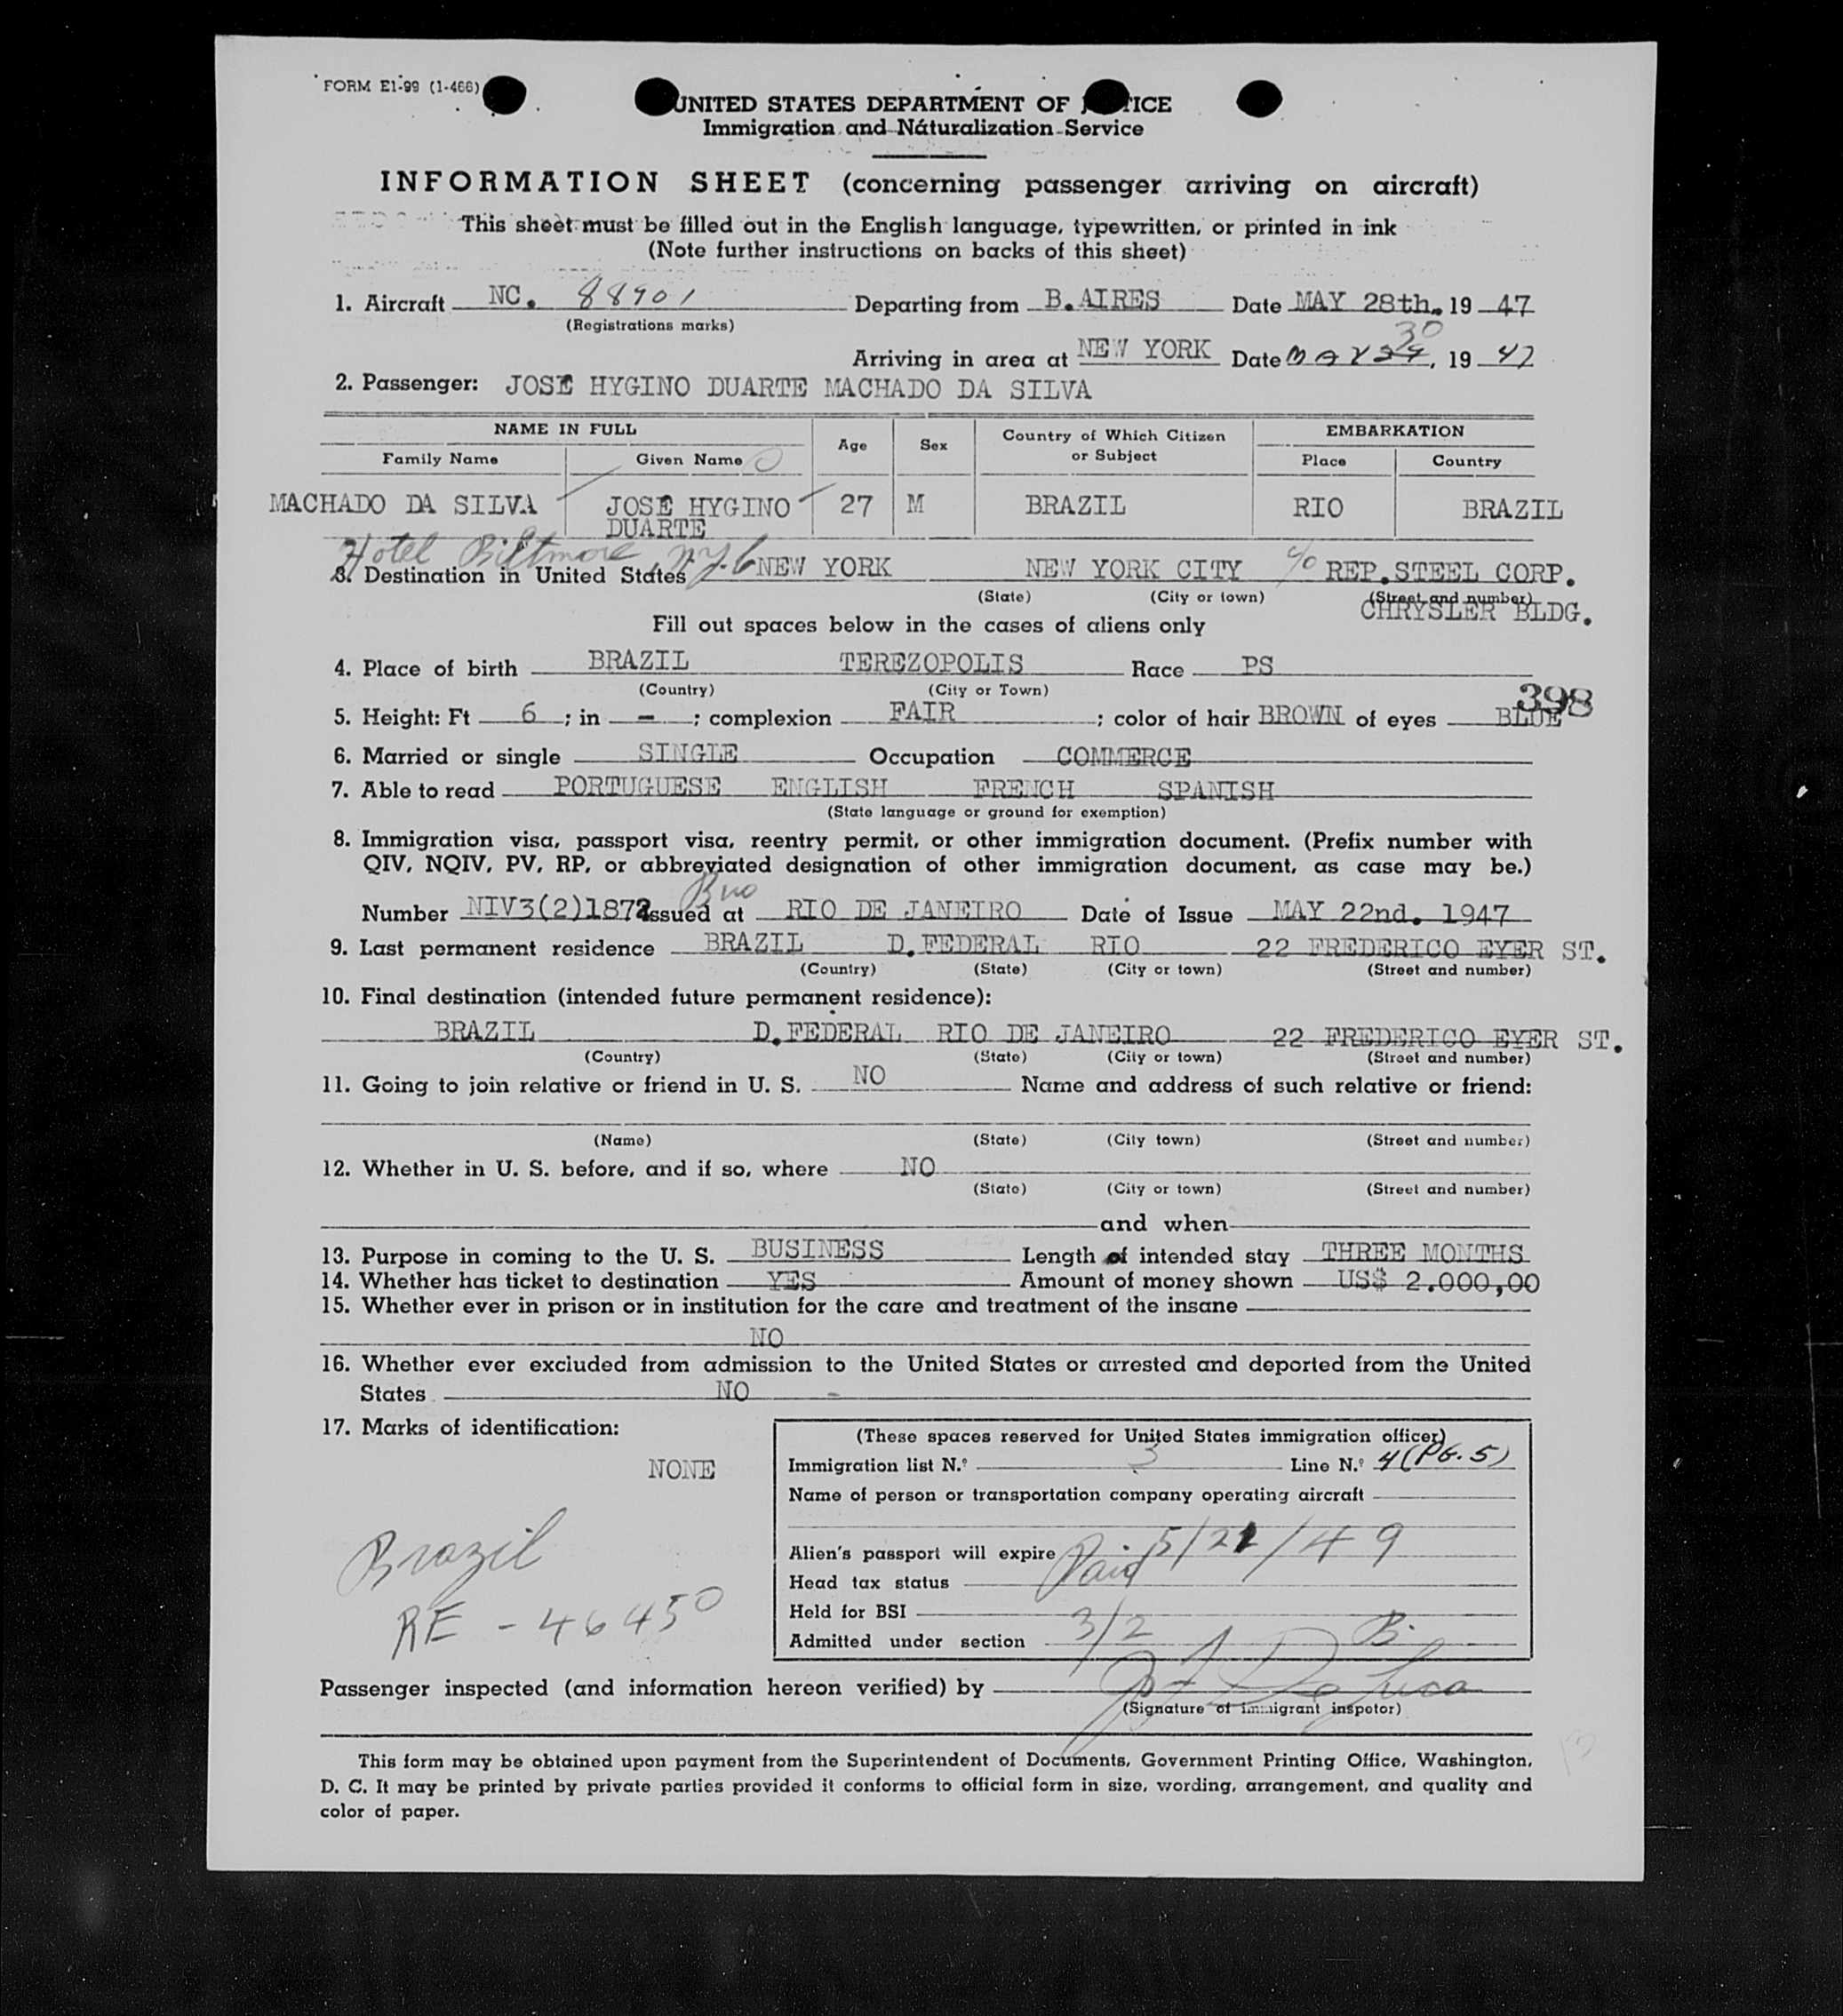 FORM E1-99 (1-466)
UNITED STATES DEPARTMENT OF J TICE
Immigration and Naturalization Service
INFORMATION SHEET (concerning passenger arriving on aircraft)
This sheet must be filled out in the English language, typewritten, or printed in ink
(Note further instructions on backs of this sheet)
1. Aircraft NC. 88901 Departing from B.AIRES Date MAY 28th. 19 47
(Registrations marks)
30
Arriving in area at NEW YORK Date MAY 29, 19 47
2. Passenger: JOSE HYGINO DUARTE MACHADO DA SILVA
NAME IN FULL Age Sex Country of Which Citizen or Subject EMBARKATION
Family Name Given Name Place Country
MACHADO DA SILVA JOSE HYGINO 27 M BRAZIL RIO BRAZIL
DUARTE
Hotel Biltmore, N.Y.C
3. Destination in United States NEW YORK NEW YORK CITY c/o REP.STEEL CORP.
(State) (City or town) (Street and number)
CHRYSLER BLDG.
Fill out spaces below in the cases of aliens only
4. Place of birth BRAZIL TEREZOPOLIS Race PS
(Country) (City or Town)
398
5. Height: Ft 6 ; in - ; complexion FAIR ; color of hair BROWN of eyes BLUE
6. Married or single SINGLE Occupation COMMERCE
7. Able to read PORTUGUESE ENGLISH FRENCH SPANISH
(State language or ground for exemption)
8. Immigration visa, passport visa, reentry permit, or other immigration document. (Prefix number with
QIV, NQIV, PV, RP, or abbreviated designation of other immigration document, as case may be.)
Number NIV3(2)1872 issued at RIO DE JANEIRO Date of Issue MAY 22nd. 1947
9. Last permanent residence BRAZIL D.FEDERAL RIO 22 FREDERICO EYER ST.
(Country) (State) (City or town) (Street and number)
10. Final destination (intended future permanent residence):
BRAZIL D.FEDERAL RIO DE JANEIRO 22 FREDERICO EYER ST.
(Country) (State) (City or town) (Street and number)
11. Going to join relative or friend in U. S. NO Name and address of such relative or friend:
(Name) (State) (City town) (Street and number)
12. Whether in U. S. before, and if so, where NO
(State) (City or town) (Street and number)
and when
13. Purpose in coming to the U. S. BUSINESS Length of intended stay THREE MONTHS
14. Whether has ticket to destination YES Amount of money shown US$ 2.000,00
15. Whether ever in prison or in institution for the care and treatment of the insane
NO
16. Whether ever excluded from admission to the United States or arrested and deported from the United
States NO
17. Marks of identification:
NONE
Brazil
RE - 46450
(These spaces reserved for United States immigration officer)
Immigration list N.º 3 Line N.º 4 (PG. 5)
Name of person or transportation company operating aircraft
Alien's passport will expire 5/21/49
Head tax status Paid
Held for BSI
Admitted under section 3/2 B.
Passenger inspected (and information hereon verified) by
(Signature of immigrant inspetor)
This form may be obtained upon payment from the Superintendent of Documents, Government Printing Office, Washington,
D. C. It may be printed by private parties provided it conforms to official form in size, wording, arrangement, and quality and
color of paper.